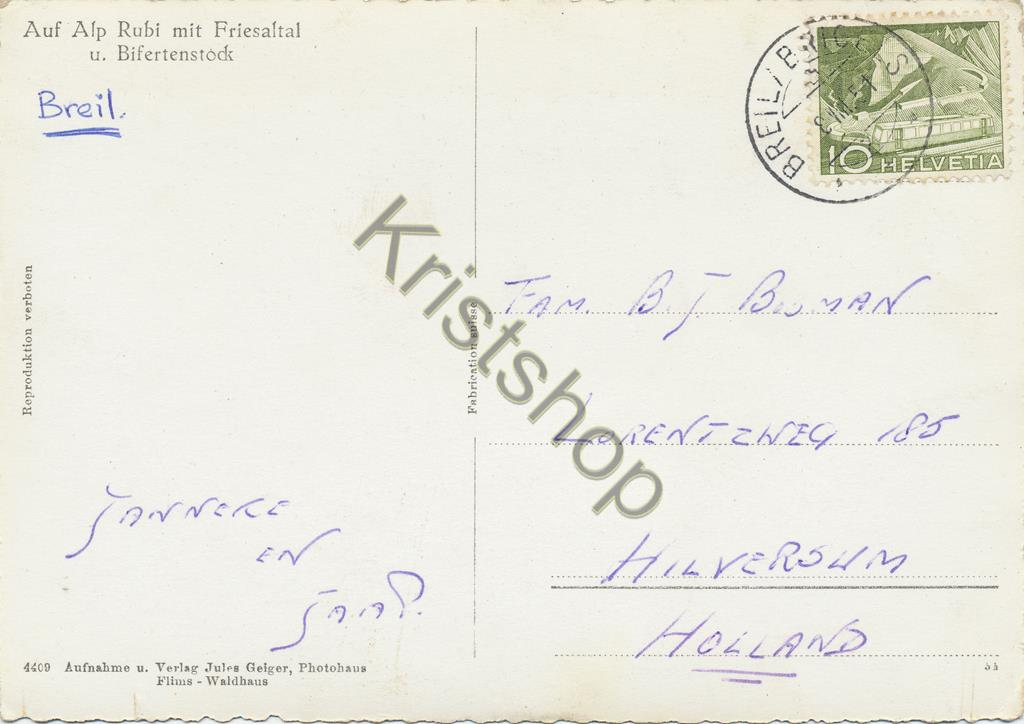 Auf Alp Rubi mit Friesaltal
u. Bifertenstock
Breil.
BREIL/BRIGELS
10 HELVETIA
Reproduktion verboten
Fabrication suisse
Kristshop
FAM. B. J. BOUMAN
LORENTZWEG 185
HILVERSUM
HOLLAND
JANNEKE
EN
JAAP.
4409 Aufnahme u. Verlag Jules Geiger, Photohaus
Flims - Waldhaus